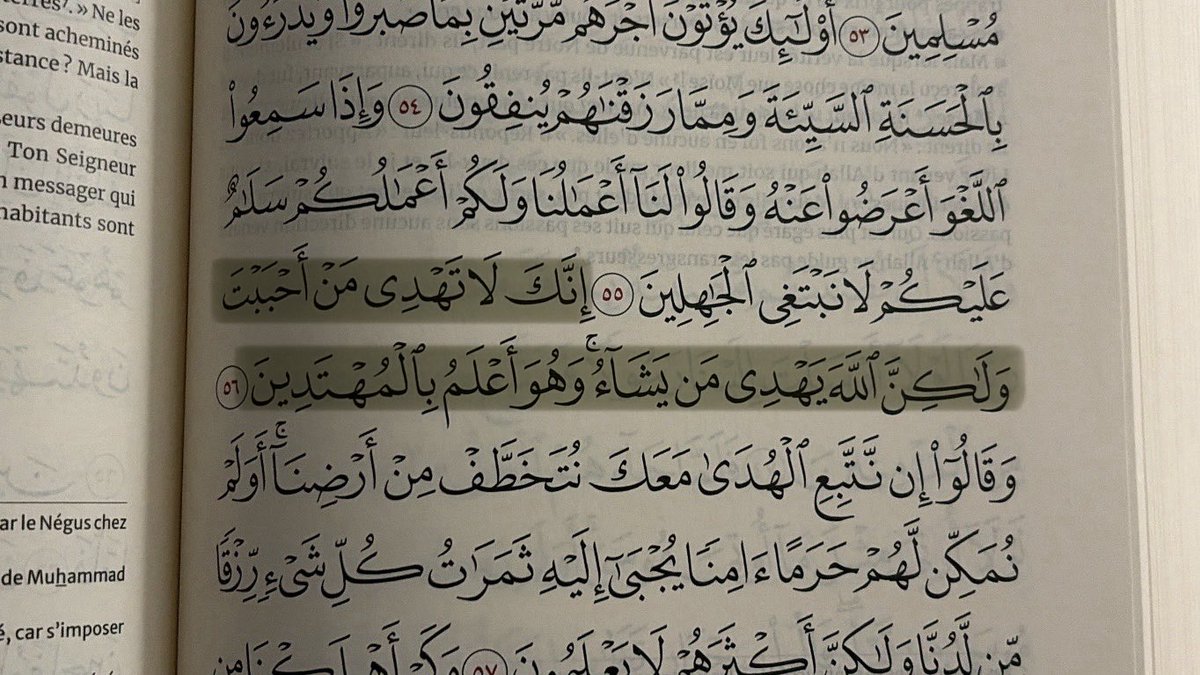 terres?. » Ne les
sont acheminés
stance ? Mais la
leurs demeures
Ton Seigneur
messager qui
habitants sont
ar le Négus chez
de Muhammad
é, car s'imposer
مُسْلِمِينَ ٥٣ أُوْلَٰٓئِكَ يُؤْتَوْنَ أَجْرَهُم مَّرَّتَيْنِ بِمَا صَبَرُواْ وَيَدْرَءُونَ
بِٱلْحَسَنَةِ ٱلسَّيِّئَةَ وَمِمَّا رَزَقْنَٰهُمْ يُنفِقُونَ ٥٤ وَإِذَا سَمِعُواْ
ٱللَّغْوَ أَعْرَضُواْ عَنْهُ وَقَالُواْ لَنَآ أَعْمَٰلُنَا وَلَكُمْ أَعْمَٰلُكُمْ سَلَٰمٌ
عَلَيْكُمْ لَا نَبْتَغِى ٱلْجَٰهِلِينَ ٥٥ إِنَّكَ لَا تَهْدِى مَنْ أَحْبَبْتَ
وَلَٰكِنَّ ٱللَّهَ يَهْدِى مَن يَشَآءُ ۚ وَهُوَ أَعْلَمُ بِٱلْمُهْتَدِينَ ٥٦
وَقَالُوٓاْ إِن نَّتَّبِعِ ٱلْهُدَىٰ مَعَكَ نُتَخَطَّفْ مِنْ أَرْضِنَآ ۚ أَوَلَمْ
نُمَكِّن لَّهُمْ حَرَمًا ءَامِنًا يُجْبَىٰٓ إِلَيْهِ ثَمَرَٰتُ كُلِّ شَىْءٍ رِّزْقًا
مِّن لَّدُنَّا وَلَٰكِنَّ أَكْثَرَهُمْ لَا يَعْلَمُونَ ٥٧ وَكَمْ أَهْلَكْنَا مِن